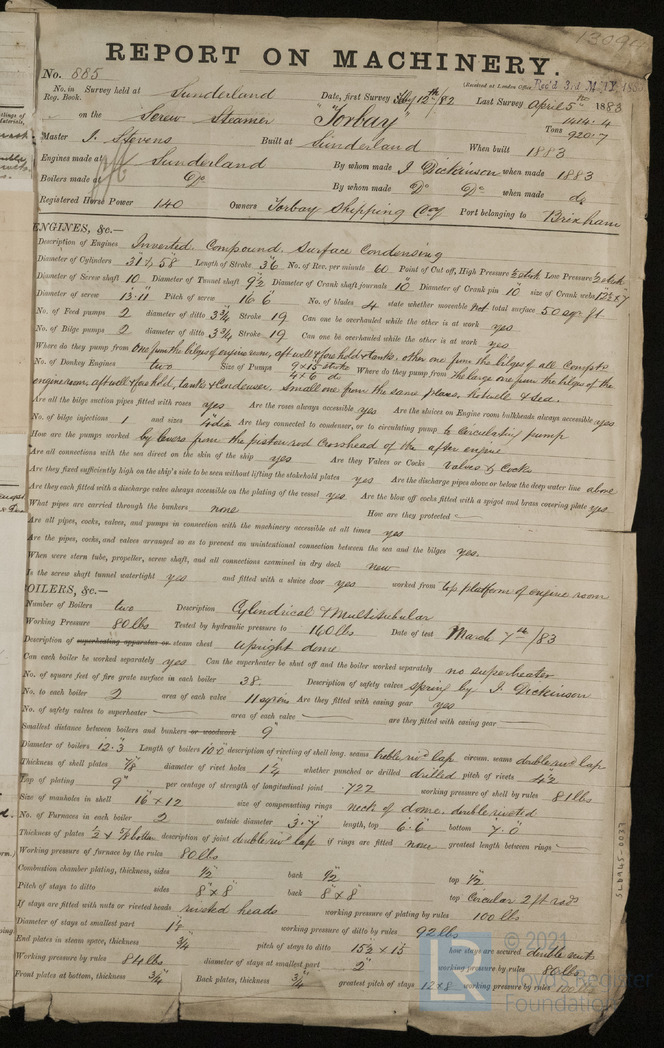 13099
REPORT ON MACHINERY.
No. 885
(Received at London Office Rec'd 3rd MAY 188
No. in Survey held at Sunderland Date, first Survey 12th/82 Last Survey April 5th 1883
Reg. Book.
on the Screw Steamer "Torbay" Tons 1414.4
920.7
Master J. Stevens Built at Sunderland When built 1883
Engines made at Sunderland By whom made J. Dickinson when made 1883
Boilers made at Do By whom made Do Do when made do
Registered Horse Power 140 Owners Torbay Shipping Coy Port belonging to Brixham
ENGINES, &c.—
Description of Engines Inverted Compound Surface Condensing
Diameter of Cylinders 31 & 58 Length of Stroke 36 No. of Rev. per minute 60 Point of Cut off, High Pressure ½ stroke Low Pressure ½ stroke
Diameter of Screw shaft 10 Diameter of Tunnel shaft 9½ Diameter of Crank shaft journals 10 Diameter of Crank pin 10 size of Crank webs 12½ x 7
Diameter of screw 13.11 Pitch of screw 16 6 No. of blades 4 state whether moveable not total surface 50 sq. ft
No. of Feed pumps 2 diameter of ditto 3¾ Stroke 19 Can one be overhauled while the other is at work yes
No. of Bilge pumps 2 diameter of ditto 3¾ Stroke 19 Can one be overhauled while the other is at work yes
Where do they pump from One from the bilges of engine room, aft well & fore hold & tanks, other one from the bilges of all Compts
No. of Donkey Engines two Size of Pumps 9 x 15 stroke 4 x 6 do Where do they pump from The large one from the bilges of the
engine room, aft well & fore hold, tanks & Condenser. Small one from the same places, Hotwell & Sea.
Are all the bilge suction pipes fitted with roses yes Are the roses always accessible yes Are the sluices on Engine room bulkheads always accessible yes
No. of bilge injections 1 and sizes 4 dia Are they connected to condenser, or to circulating pump to Circulating pump
How are the pumps worked by levers from the piston rod Crosshead of the after engine
Are all connections with the sea direct on the skin of the ship yes Are they Valves or Cocks Valves & Cocks
Are they fixed sufficiently high on the ship's side to be seen without lifting the stokehold plates yes Are the discharge pipes above or below the deep water line above
Are they each fitted with a discharge valve always accessible on the plating of the vessel yes Are the blow off cocks fitted with a spigot and brass covering plate yes
What pipes are carried through the bunkers none How are they protected —
Are all pipes, cocks, valves, and pumps in connection with the machinery accessible at all times yes
Are the pipes, cocks, and valves arranged so as to prevent an unintentional connection between the sea and the bilges yes.
When were stern tube, propeller, screw shaft, and all connections examined in dry dock new
Is the screw shaft tunnel watertight yes and fitted with a sluice door yes worked from top platform of engine room
BOILERS, &c.—
Number of Boilers two Description Cylindrical & Multitubular
Working Pressure 80 lbs Tested by hydraulic pressure to 160 lbs Date of test March 7th/83
Description of superheating apparatus or steam chest upright dome
Can each boiler be worked separately yes Can the superheater be shut off and the boiler worked separately no superheater
No. of square feet of fire grate surface in each boiler 38 Description of safety valves spring by J. Dickinson
No. to each boiler 2 area of each valve 11 sq ins Are they fitted with easing gear yes
No. of safety valves to superheater — area of each valve — are they fitted with easing gear —
Smallest distance between boilers and bunkers or woodwork 9"
Diameter of boilers 12.3 Length of boilers 10.0 description of riveting of shell long. seams treble rivd lap circum. seams double rivd lap
Thickness of shell plates 7/8 diameter of rivet holes 1¼ whether punched or drilled drilled pitch of rivets 4½
Lap of plating 9" per centage of strength of longitudinal joint .722 working pressure of shell by rules 81 lbs
Size of manholes in shell 16 x 12 size of compensating rings neck of dome, double riveted
No. of Furnaces in each boiler 2 outside diameter 3.7 length, top 6.6 bottom 7.0
Thickness of plates ½ & 5/8 bottom description of joint double rivd lap if rings are fitted none greatest length between rings —
Working pressure of furnace by the rules 80 lbs
Combustion chamber plating, thickness, sides ½ back ½ top ½
Pitch of stays to ditto sides 8" x 8" back 8" x 8" top Circular 2 ft rads
If stays are fitted with nuts or riveted heads riveted heads working pressure of plating by rules 100 lbs
Diameter of stays at smallest part working pressure of ditto by rules 92 lbs
End plates in steam space, thickness ¾ pitch of stays to ditto 15½ x 15 how stays are secured double nuts
Working pressure by rules 84 lbs diameter of stays at smallest part 2" working pressure by rules 80 lbs
Front plates at bottom, thickness ¾ Back plates, thickness ¾ greatest pitch of stays 12 x 8 working pressure by rules 100 lbs
SLD965-0037
LR
© 2021
Lloyd's Register
Foundation